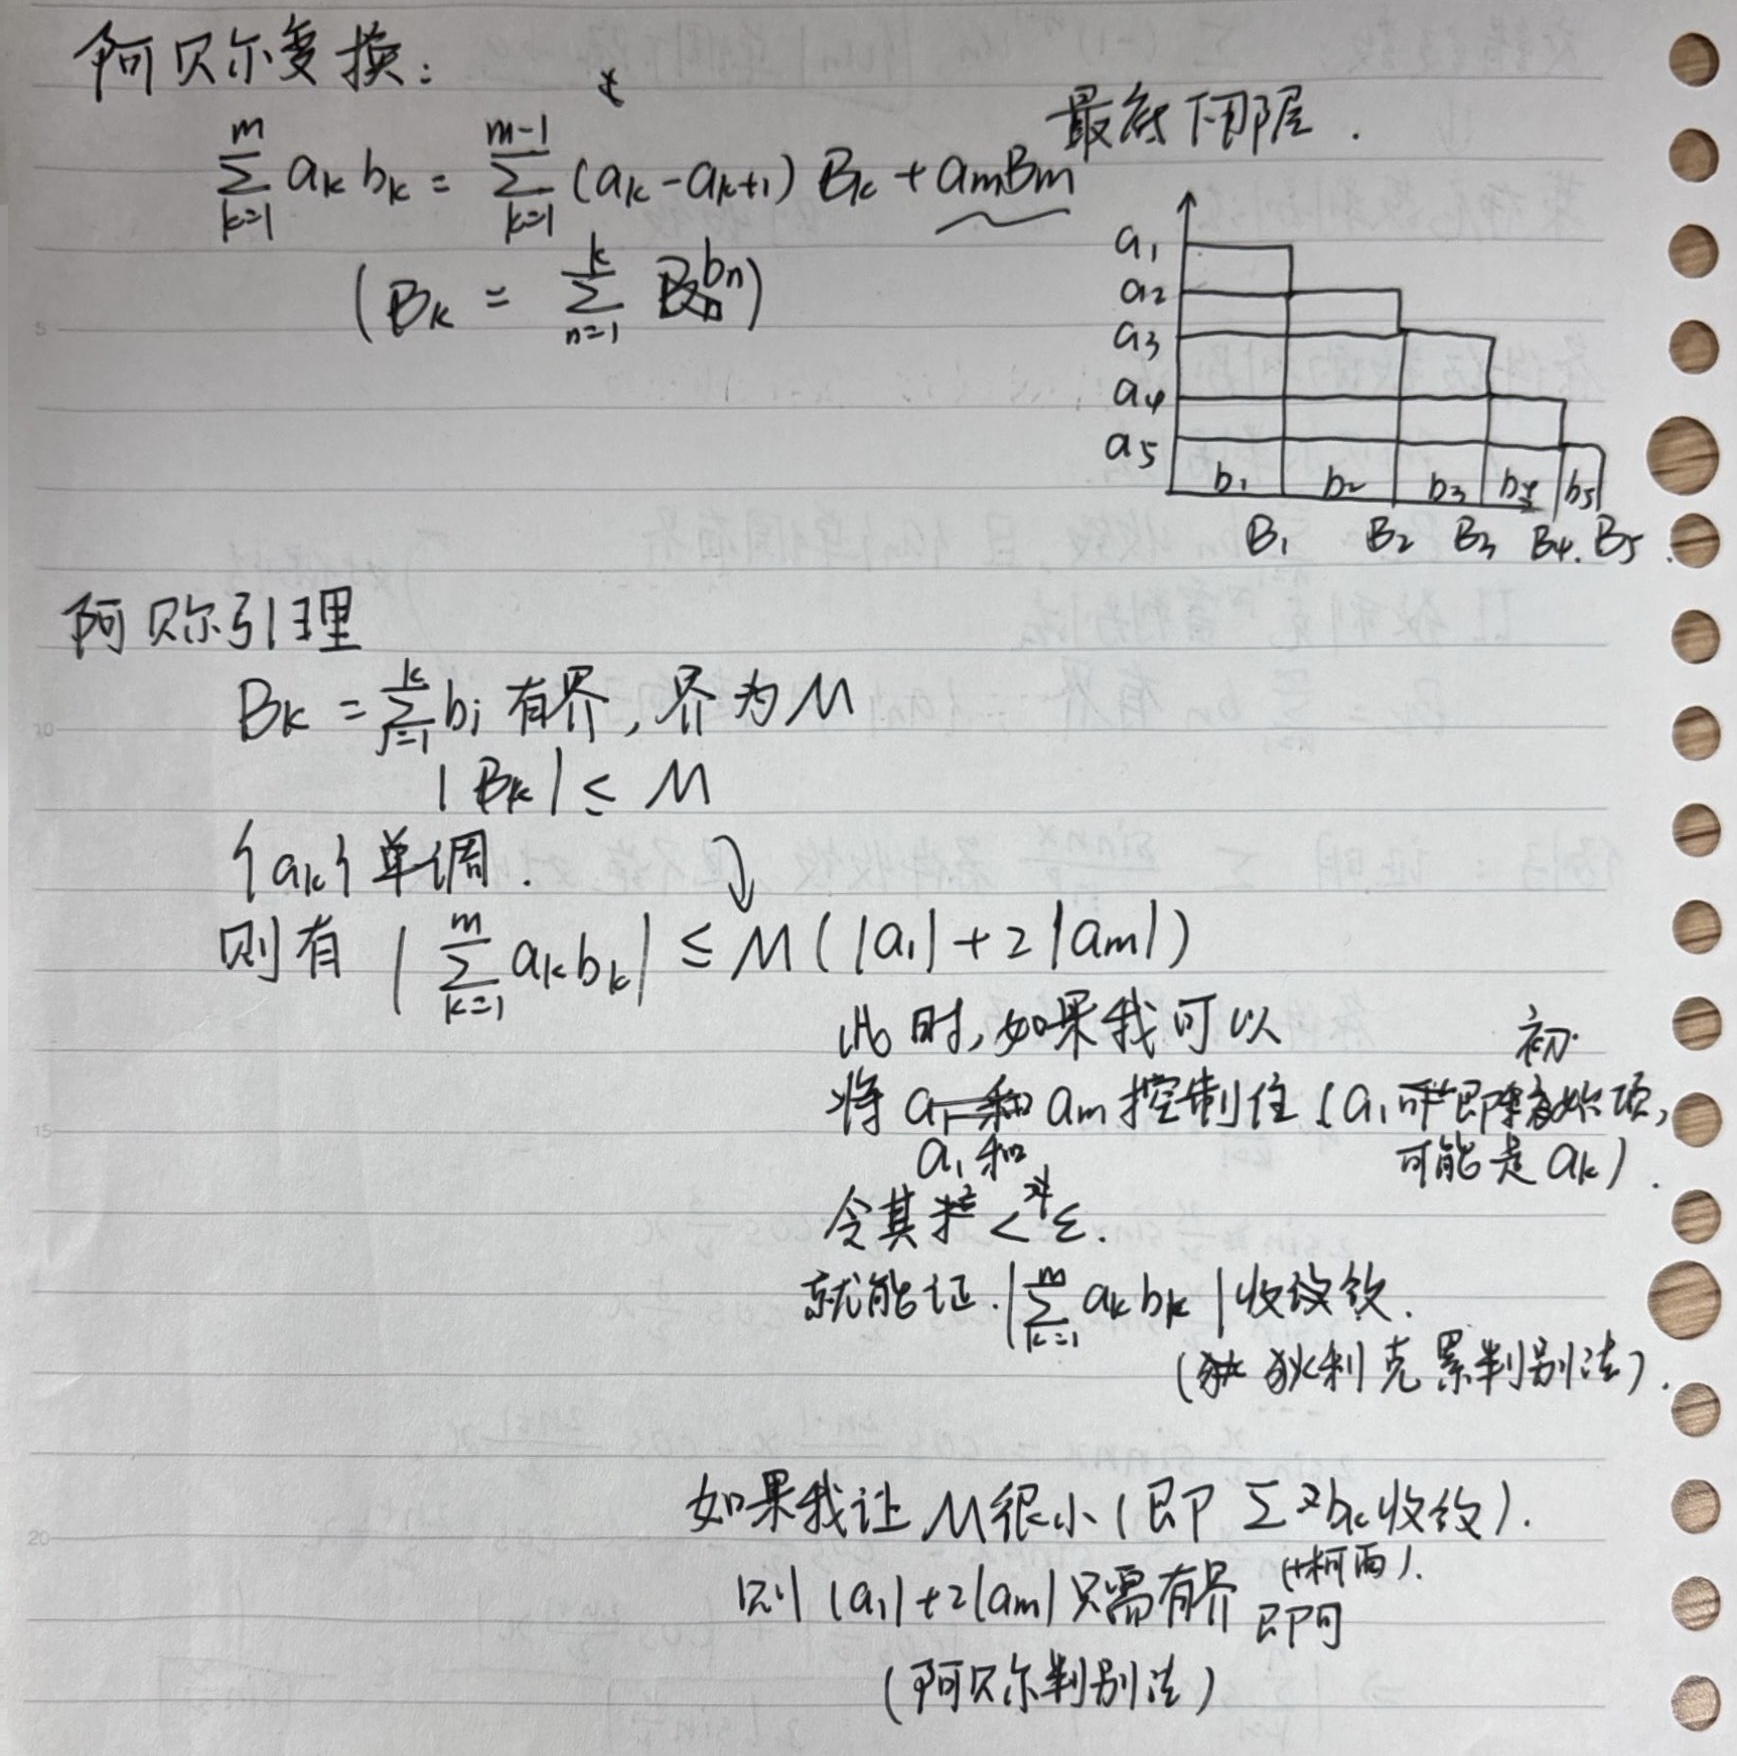 阿贝尔变换:
∑_{k=1}^{m} a_k b_k = ∑_{k=1}^{m-1} (a_k - a_{k+1}) B_k + a_m B_m
最底下那层.
(B_k = ∑_{n=1}^{k} b_n)
a_1
a_2
a_3
a_4
a_5
b_1 b_2 b_3 b_4 b_5
B_1 B_2 B_3 B_4. B_5
阿贝尔引理
B_k = ∑_{j=1}^{k} b_j 有界,界为M
|B_k| ≤ M
{a_k}单调.
则有 |∑_{k=1}^{m} a_k b_k| ≤ M(|a_1| + 2|a_m|)
此时,如果我可以
将 a_1和 a_m 控制住 (a_1即初始项,
可能是 a_k).
令其 < ε.
就能证.|∑_{k=1}^{m} a_k b_k| 收敛.
(狄利克雷判别法).
如果我让 M很小(即 ∑b_k收敛).
(柯西).
则 |a_1|+2|a_m| 只需有界 即可
(阿贝尔判别法)